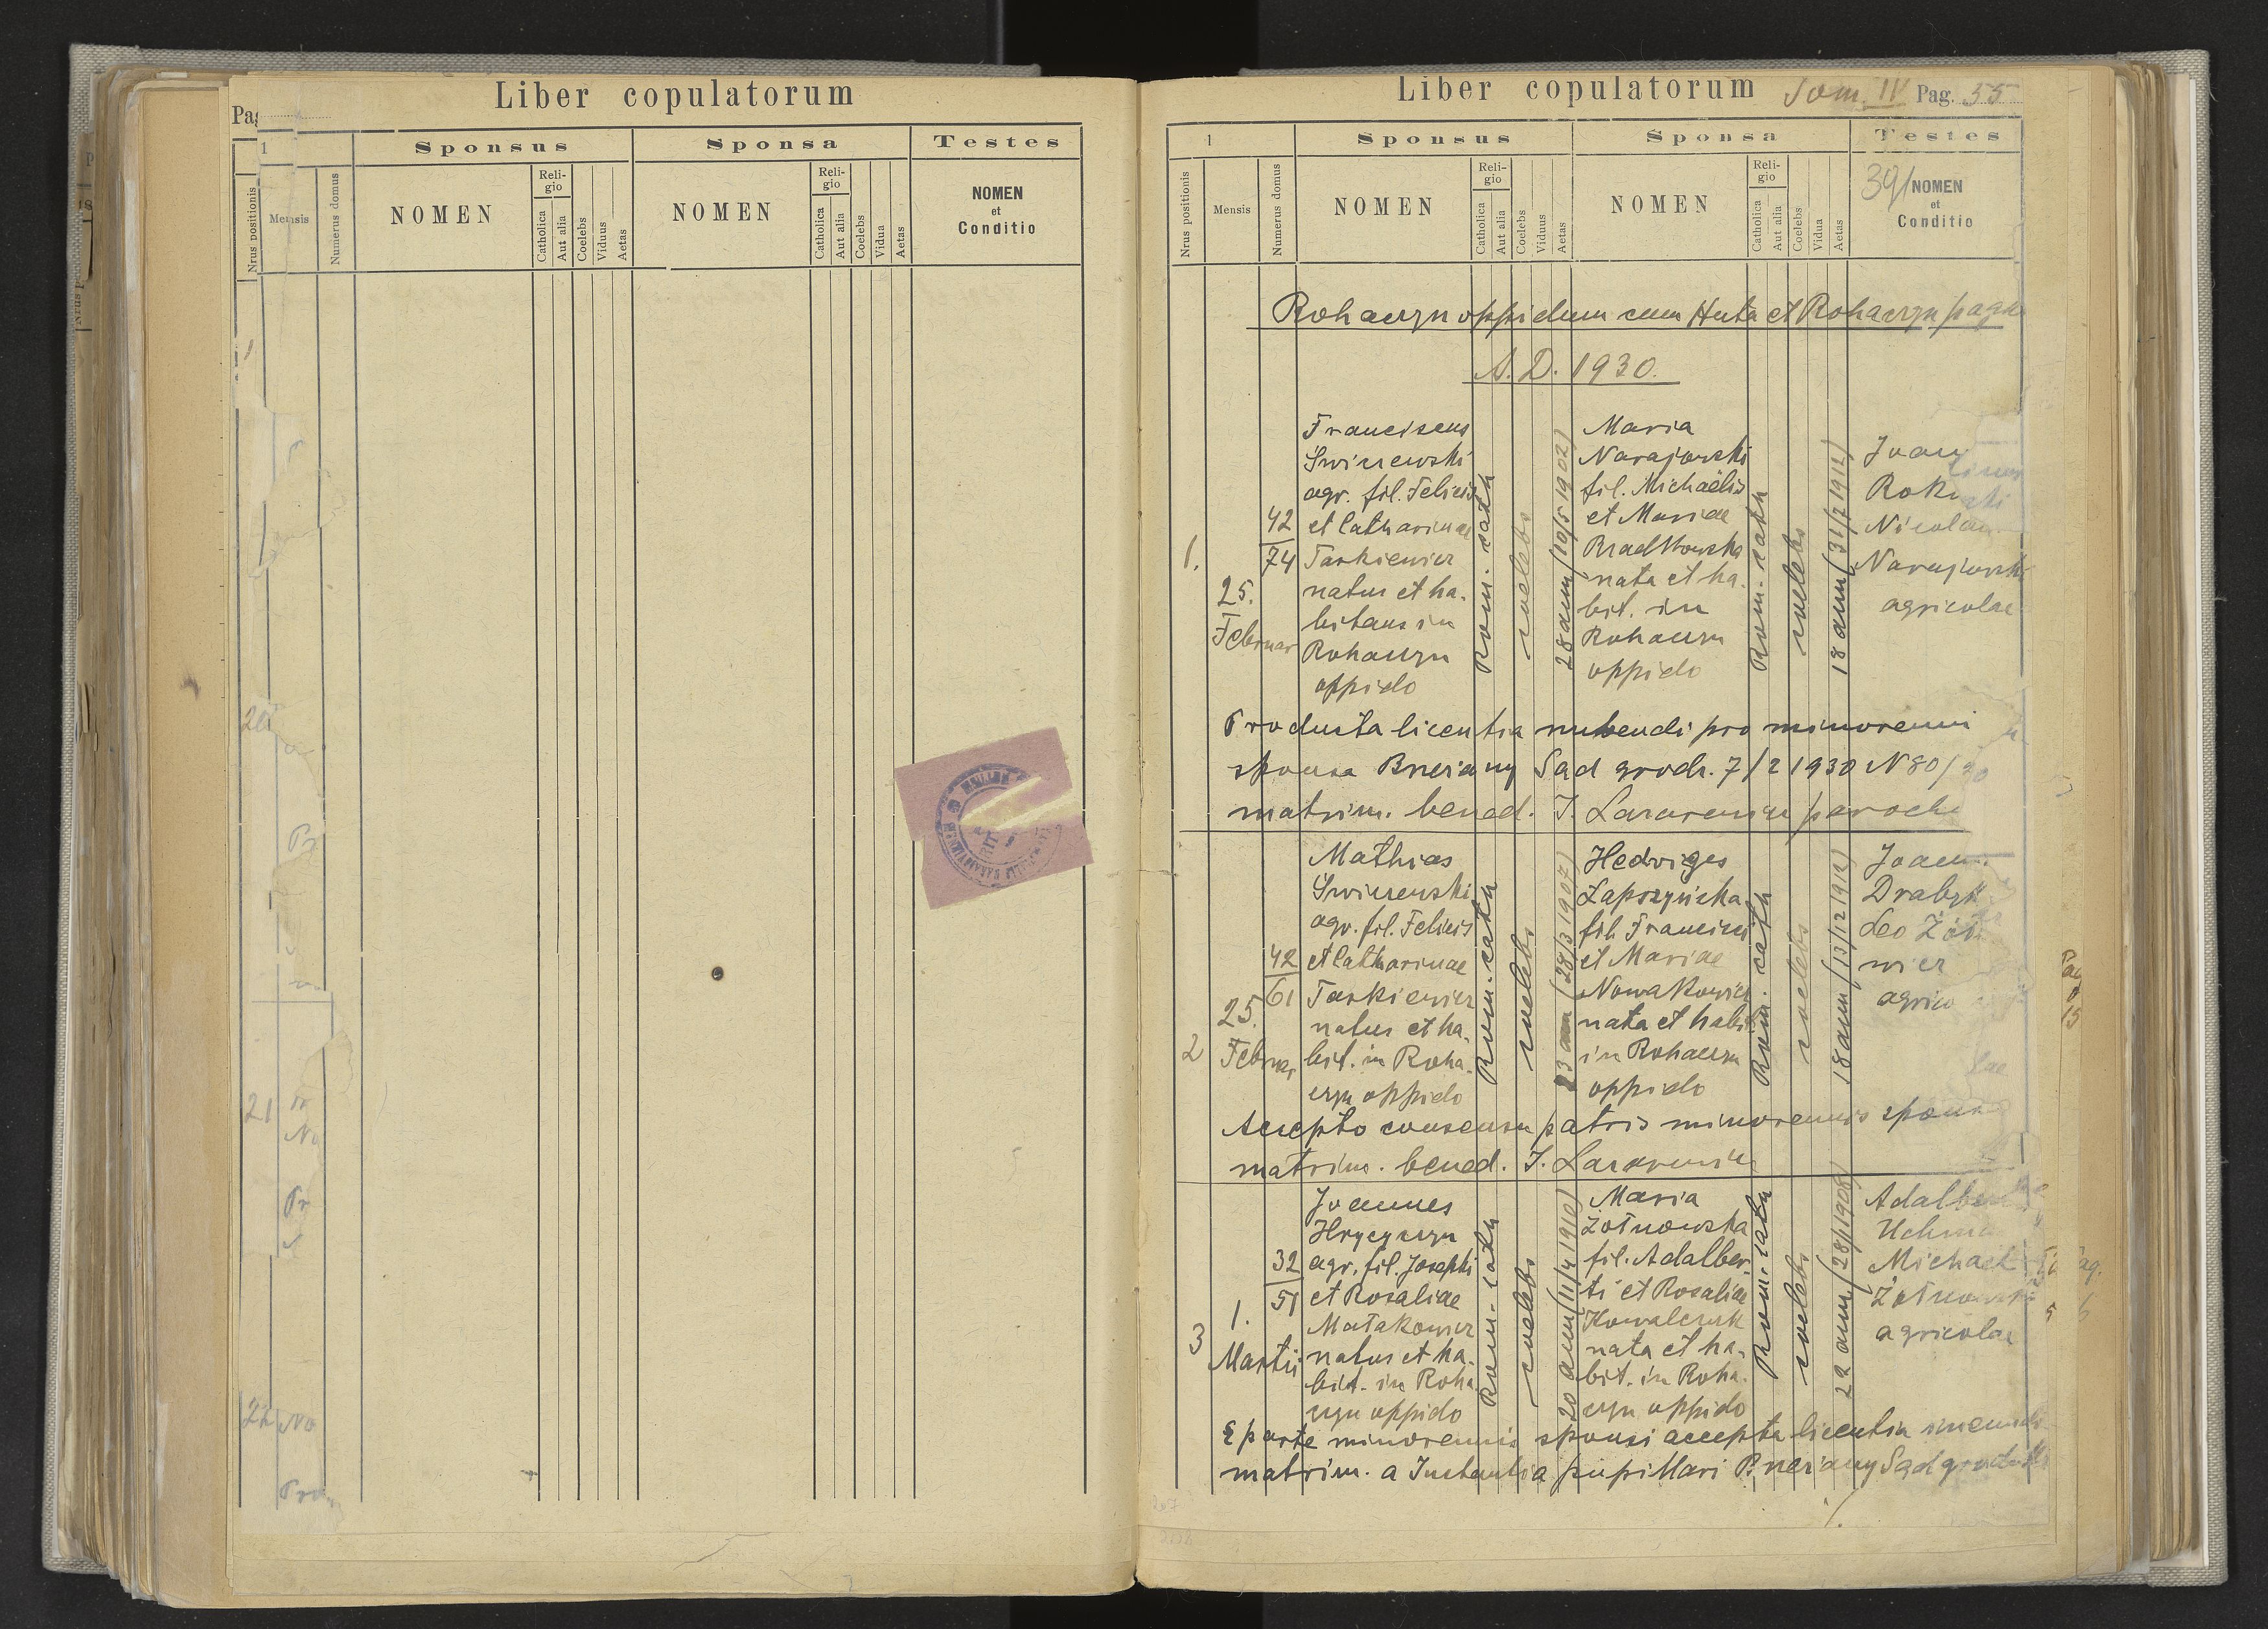 Liber copulatorum
Pag
1
Sponsus
Sponsa
Testes
Nrus positionis
Mensis
Numerus domus
NOMEN
Religio
Catholica
Aut alia
Coelebs
Viduus
Aetas
NOMEN
Religio
Catholica
Aut alia
Coelebs
Vidua
Aetas
NOMEN
et
Conditio
21
Liber copulatorum Tom. IV Pag. 55
1
Sponsus
Sponsa
Testes
Nrus positionis
Mensis
Numerus domus
NOMEN
Religio
Catholica
Aut alia
Coelebs
Viduus
Aetas
NOMEN
Religio
Catholica
Aut alia
Coelebs
Vidua
Aetas
39/
NOMEN
et
Conditio
Rohaczyn oppidum cum Huta et Rohaczyn pagus
A. D. 1930.
1.
25.
Februar
42
74
Franciscus
Świrzewski
agr. fil. Felicis
et Catharinae
Taskiewicz
natus et ha-
bitans in
Rohaczyn
oppido
Rom. cath
coelebs
28 ann (10/5 1902)
Maria
Narajowski
fil. Michaëlis
et Mariae
nata et ha-
bit. in
Rohaczyn
oppido
Rom. cath
coelebs
18 ann (31/2 1912)
Joan
Rok
Nicolau
Narajowski
agricolae
Producta licentia nubendi pro minorenni
sponsa Brzeżany Sąd grodz. 7/2 1930 N 80/30
matrim. bened. J. Lazarewicz paroch
2
25.
Februar
42
61
Mathias
Świrzewski
agr. fil. Felicis
et Catharinae
Taskiewicz
natus et ha-
bit. in Roha-
czyn oppido
Rom. cath
coelebs
23 ann (28/3 1907)
Hedviges
Łapszyńska
fil. Francisci
et Mariae
Nowakowicz
nata et habit
in Rohaczyn
oppido
Rom. cath
coelebs
18 ann (13/12 1912)
Joann
Drabyk
Leo Żół
wicz
agrico
lae
Accepto consensu patris minorennis sponsae
matrim. bened. J. Lazarewicz
3
1.
Martii
32
51
Joannes
Hrycyszyn
agr. fil. Josephi
et Rosaliae
Małakowicz
natus et ha-
bit. in Roha
czyn oppido
Rom. cath
coelebs
20 ann (11/4 1910)
Maria
Żołnowska
fil. Adalber-
ti et Rosaliae
Kowalczuk
nata et ha-
bit. in Roha-
czyn oppido
Rom. cath
coelebs
22 ann (28/1 1908)
Adalbert
Uchma
Michael
Żołnowski
agricolae
E parte minorennis sponsi accepta licentia ineundi
matrim. a Instantia pupillari Brzeżany Sąd grodzki
./.